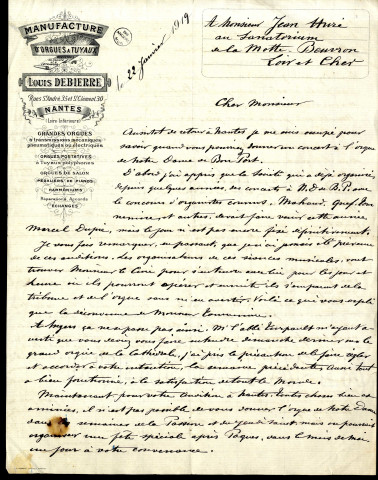 MANUFACTURE
D'ORGUES À TUYAUX
LOUIS DEBIERRE
NANTES
(Loire Inférieure)
GRANDES ORGUES
à transmissions mécaniques
pneumatiques ou électriques
ORGUES POSITATIVES
à Tuyaux polyphones
ORGUES DE SALON
PÉDALIERS DE PIANOS
HARMONIUMS
Réparations, Accords
ÉCHANGES
le 22 Janvier 1919
A Monsieur Jean Huré
au Sanatorium
de la Motte Beuvron
Loir et Cher
Cher Monsieur
Aussitôt de retour à Nantes je me suis occupé pour
savoir quand vous pourriez donner un concert à l'orgue
de Notre Dame de Bon Port.
D'abord j'ai appris que la Société qui a déjà organisé,
depuis quelques années, des concerts à N. D. de B. P. avec
le concours d'organistes connus, Mahaut,
et autres, devait faire venir cette année
Marcel Dupré, mais le jour n'est pas encore fixé définitivement.
Je vous fais remarquer, en passant, que je n'ai jamais été prévenu
de ces auditions. Les organisateurs de ces séances musicales vont
trouver Monsieur le Curé pour s'entendre avec lui pour les jour et
heure où ils pourront opérer et aussitôt ils s'emparent de la
tribune et de l'orgue sans m'en avertir. Voilà ce qui vous explique
la déconvenue de Monsieur
A Angers ça ne se passe pas ainsi. Mr l'abbé m'ayant averti
que vous deviez vous faire entendre dimanche dernier sur le
grand orgue de la Cathédrale, j'ai pris la précaution de le faire régler
et accorder à votre intention, la semaine précédente. Aussi tout
a bien fonctionné, à la satisfaction de tout le Monde.
Maintenant pour votre audition à Nantes, toutes choses bien
, il n'est pas possible de vous donner l'orgue de Notre Dame
dans les semaines de la Passion et du Jeudi Saint, mais on pourrait
organiser une fête spéciale après Pâques, dans le mois de Mai
un jour à votre convenance.